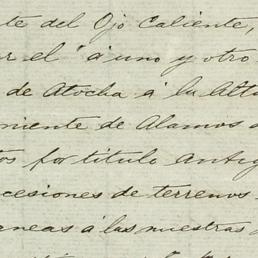 te del Ojo Caliente,
ar el "á uno y otro
de Atocha á la Altu
niente de Alamos
tos por titulo Antig
cesiones de terrenos
aneas á las nuestras